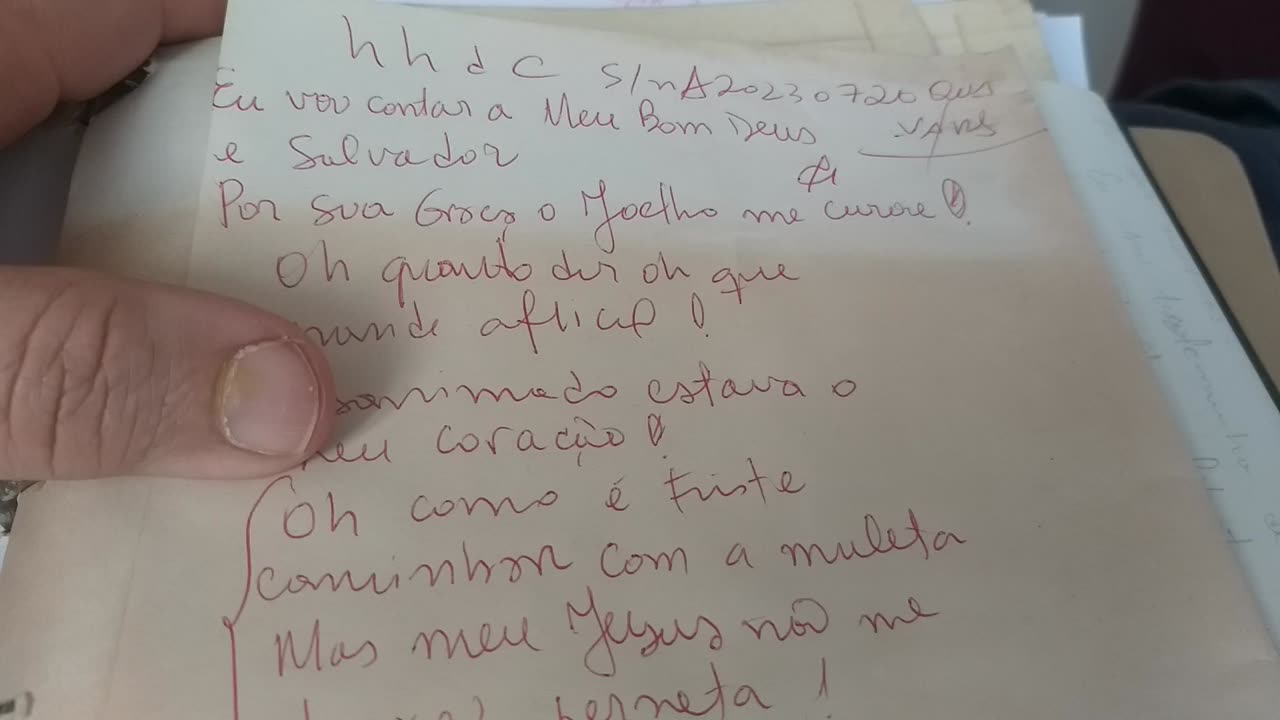 h h d C S/nA20230720 Qus
Eu vou contar a Meu Bom Deus VANS
e Salvador
Por sua Graça o Joelho me curore!
Oh quanto dor oh que
rande
animado estava o
meu coração!
Oh como é triste
caminhar com a muleta
Mas meu Jesus não me
perneta!